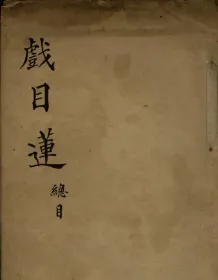 戲目蓮
總目